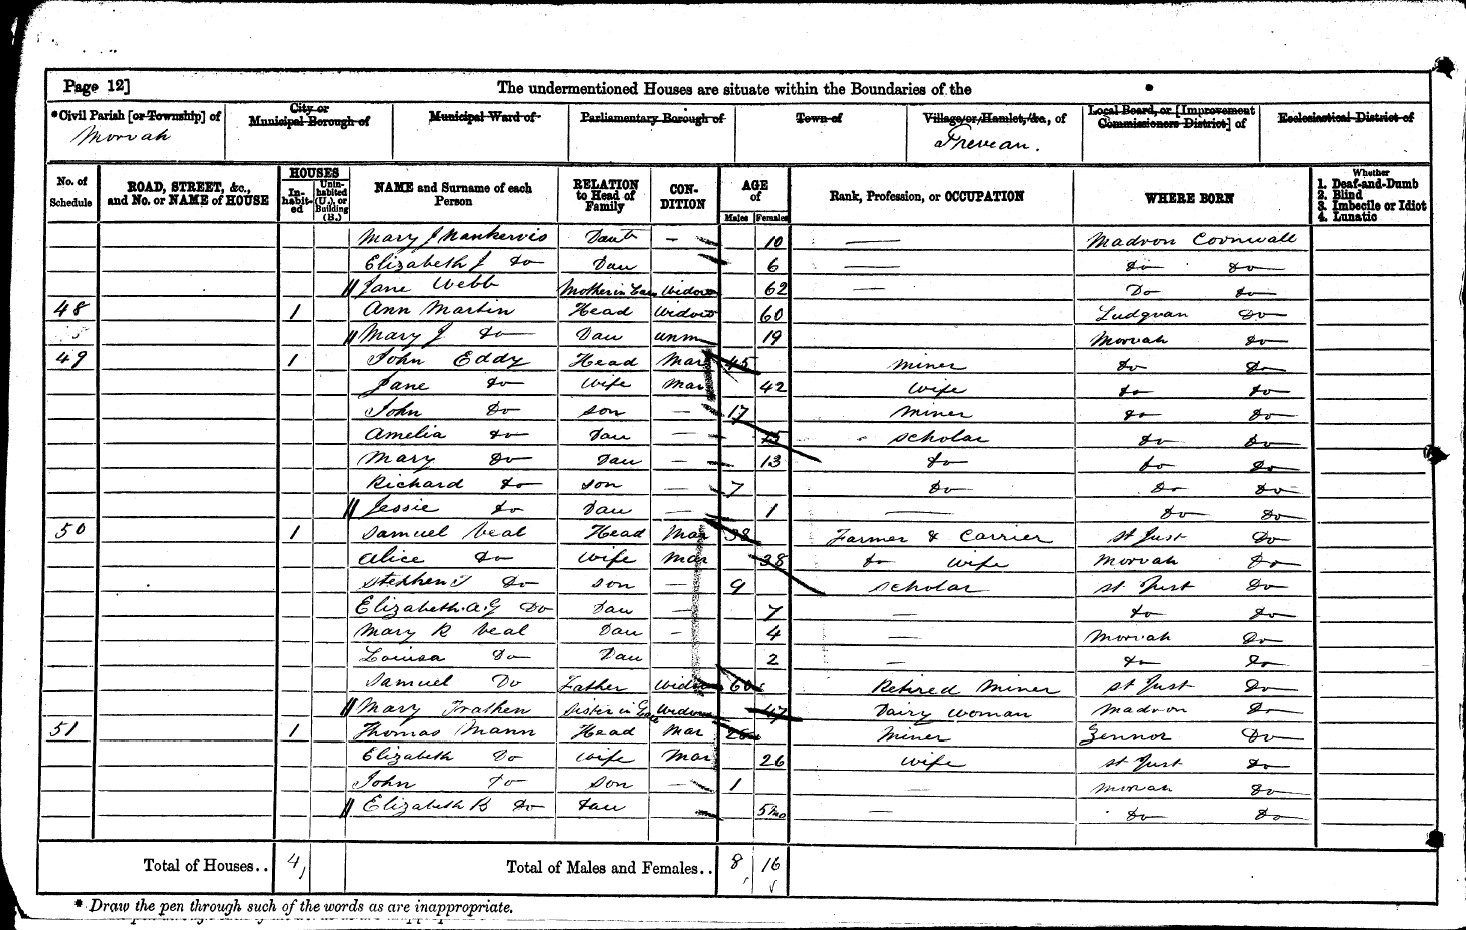 Page 12]
The undermentioned Houses are situate within the Boundaries of the
*Civil Parish [or Township] of
City or Municipal Borough of
Municipal Ward of
Parliamentary Borough of
Town of
Village or Hamlet, &c., of
Local Board, or [Improvement Commissioners District] of
Ecclesiastical District of
Morvah
Trevean.
No. of Schedule
ROAD, STREET, &c., and No. or NAME of HOUSE
HOUSES
In-habit-ed
Unin-habited (U.), or Building (B.)
NAME and Surname of each Person
RELATION to Head of Family
CON-DITION
AGE of
Males
Females
Rank, Profession, or OCCUPATION
WHERE BORN
Whether
1. Deaf-and-Dumb
2. Blind
3. Imbecile or Idiot
4. Lunatic
Mary J Nankervis Daur — 10 — Madron Cornwall
Elizabeth J Do Dau 6 — do do
Jane Webb Mother in Law Widow 62 — Do do
48 1 Ann Martin Head Widow 60 Ludgvan Do
Mary J Do Dau unm 19 Morvah do
49 1 John Eddy Head Mar 45 Miner do do
Jane Do Wife Mar 42 Wife do do
John Do son — 17 Miner do Do
Amelia do Dau — 15 Scholar do Do
Mary Do Dau — 13 do do Do
Richard do son — 7 Do Do Do
Jessie do Dau — 1 — Do Do
50 1 Samuel Veal Head Mar 38 Farmer & Carrier St Just Do
Alice Do Wife Mar 38 do Wife Morvah Do
Stephen Do son — 9 Scholar St Just Do
Elizabeth A.G Do Dau — 7 — do Do
Mary R Veal Dau — 4 — Morvah Do
Louisa Do Dau 2 — do Do
Samuel Do Father Widow 60 Retired Miner St Just Do
Mary Trathen Sister in Law Widow 47 Dairy woman Madron Do
51 1 Thomas Mann Head Mar 26 Miner Zennor Do
Elizabeth Do Wife Mar 26 Wife St Just Do
John Do Son — 1 — Morvah Do
Elizabeth B Do dau 5mo — do Do
Total of Houses.. 4 Total of Males and Females.. 8 16
* Draw the pen through such of the words as are inappropriate.